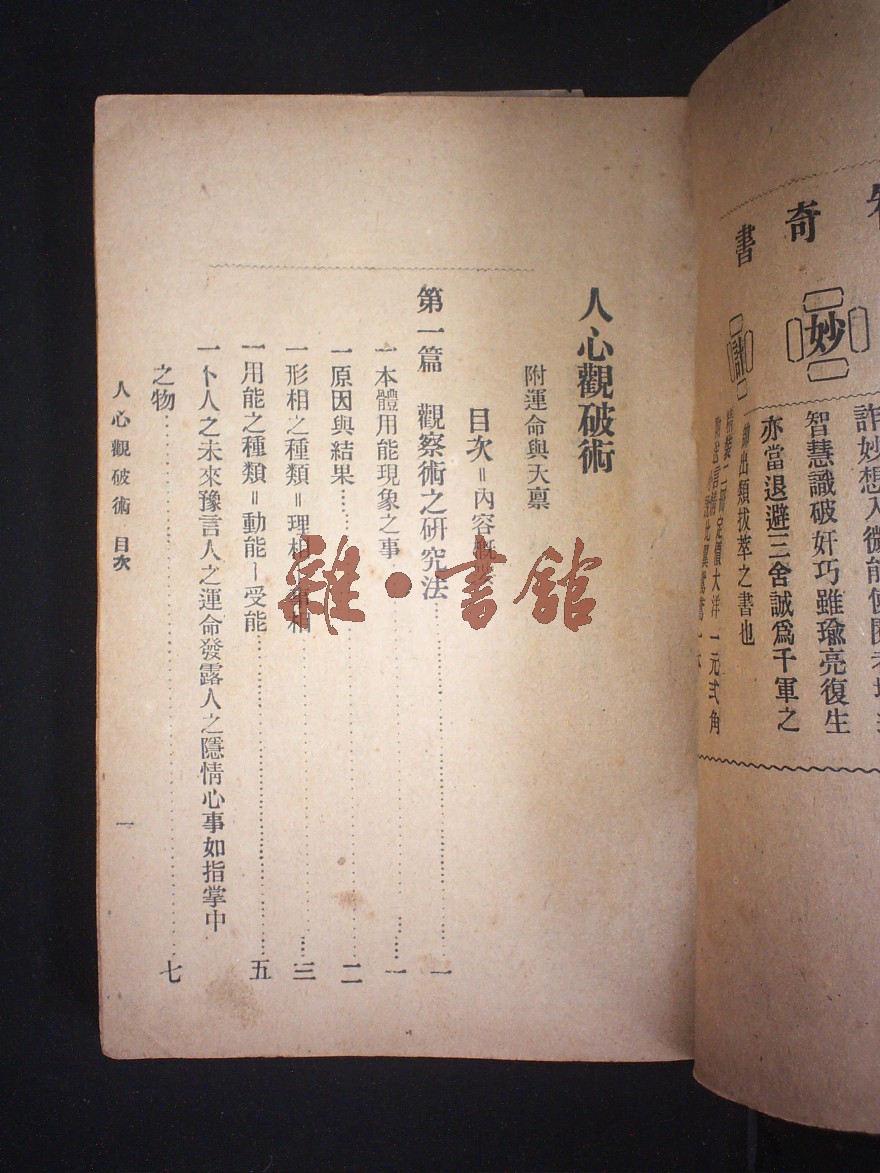 書
奇
妙
計
詐妙想入微能使閱者增
智慧識破奸巧雖瑜亮復生
亦當退避三舍誠爲千軍之
出類拔萃之書也
定價大洋一元弍角
人心觀破術
附運命與天禀
目次＝內容概要
第一篇 觀察術之研究法……一
一本體用能現象之事……一
一原因與結果……二
一形相之種類＝理相 事相……三
一用能之種類＝動能－受能……五
一卜人之未來豫言人之運命發露人之隱情心事如指掌中
之物……七
人心觀破術 目次
一
雜·書館